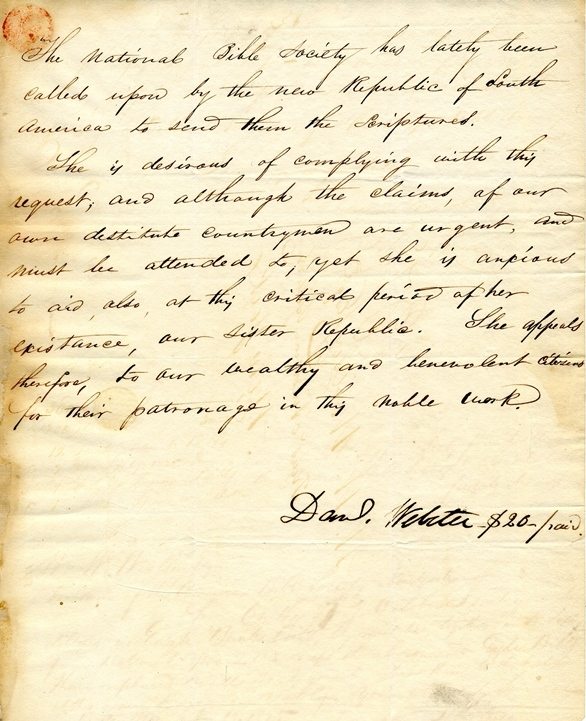 The National Bible Society has lately been
called upon by the new Republic of South
America to send them the Scriptures.
She is desirous of complying with this
request; and although the claims, of our
own destitute countrymen are urgent, and
must be attended to, yet she is anxious
to aid, also, at this critical period of her
existance, our sister Republic. She appeals
therefore, to our wealthy and benevolent citizens
for their patronage in this noble work.
Danl. Webster $20 paid.